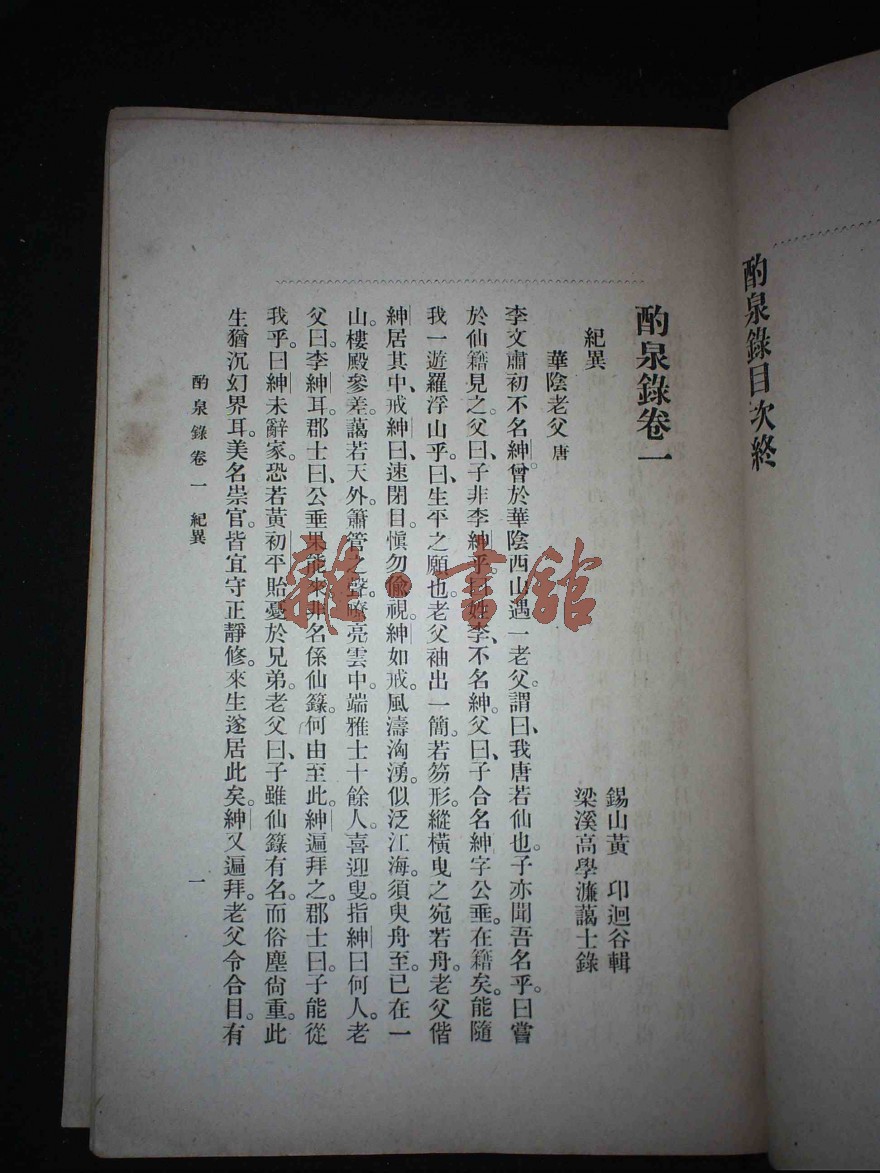 酌泉錄目次終
酌泉錄卷一
錫山黃　卬迴谷輯
梁溪高學濂藹士錄
紀異
華陰老父 唐
李文肅初不名紳。曾於華陰西山遇一老父。謂曰、我唐若仙也。子亦聞吾名乎。曰嘗
於仙籍見之。父曰、子非李紳乎。曰姓李、不名紳。父曰、子合名紳字公垂。在籍矣。能隨
我一遊羅浮山乎。曰、生平之願也。老父袖出一簡。若笏形。縱橫曳之宛若舟。老父偕
紳居其中、戒紳曰、速閉目。愼勿偸視。紳如戒。風濤洶湧。似泛江海。須臾舟至。已在一
山。樓殿參差。藹若天外。簫管之聲。嘹亮雲中。端雅士十餘人。喜迎叟。指紳曰何人。老
父曰。李紳耳。郡士曰、公垂果能來。非名係仙籙。何由至此。紳遍拜之。郡士曰。子能從
我乎。曰紳未辭家。恐若黃初平貽憂於兄弟。老父曰、子雖仙籙有名。而俗塵尙重。此
生猶沉幻界耳。美名崇官。皆宜守正靜修。來生遂居此矣。紳又遍拜。老父令合目。有
酌泉錄卷一　紀異
一
雜·書館